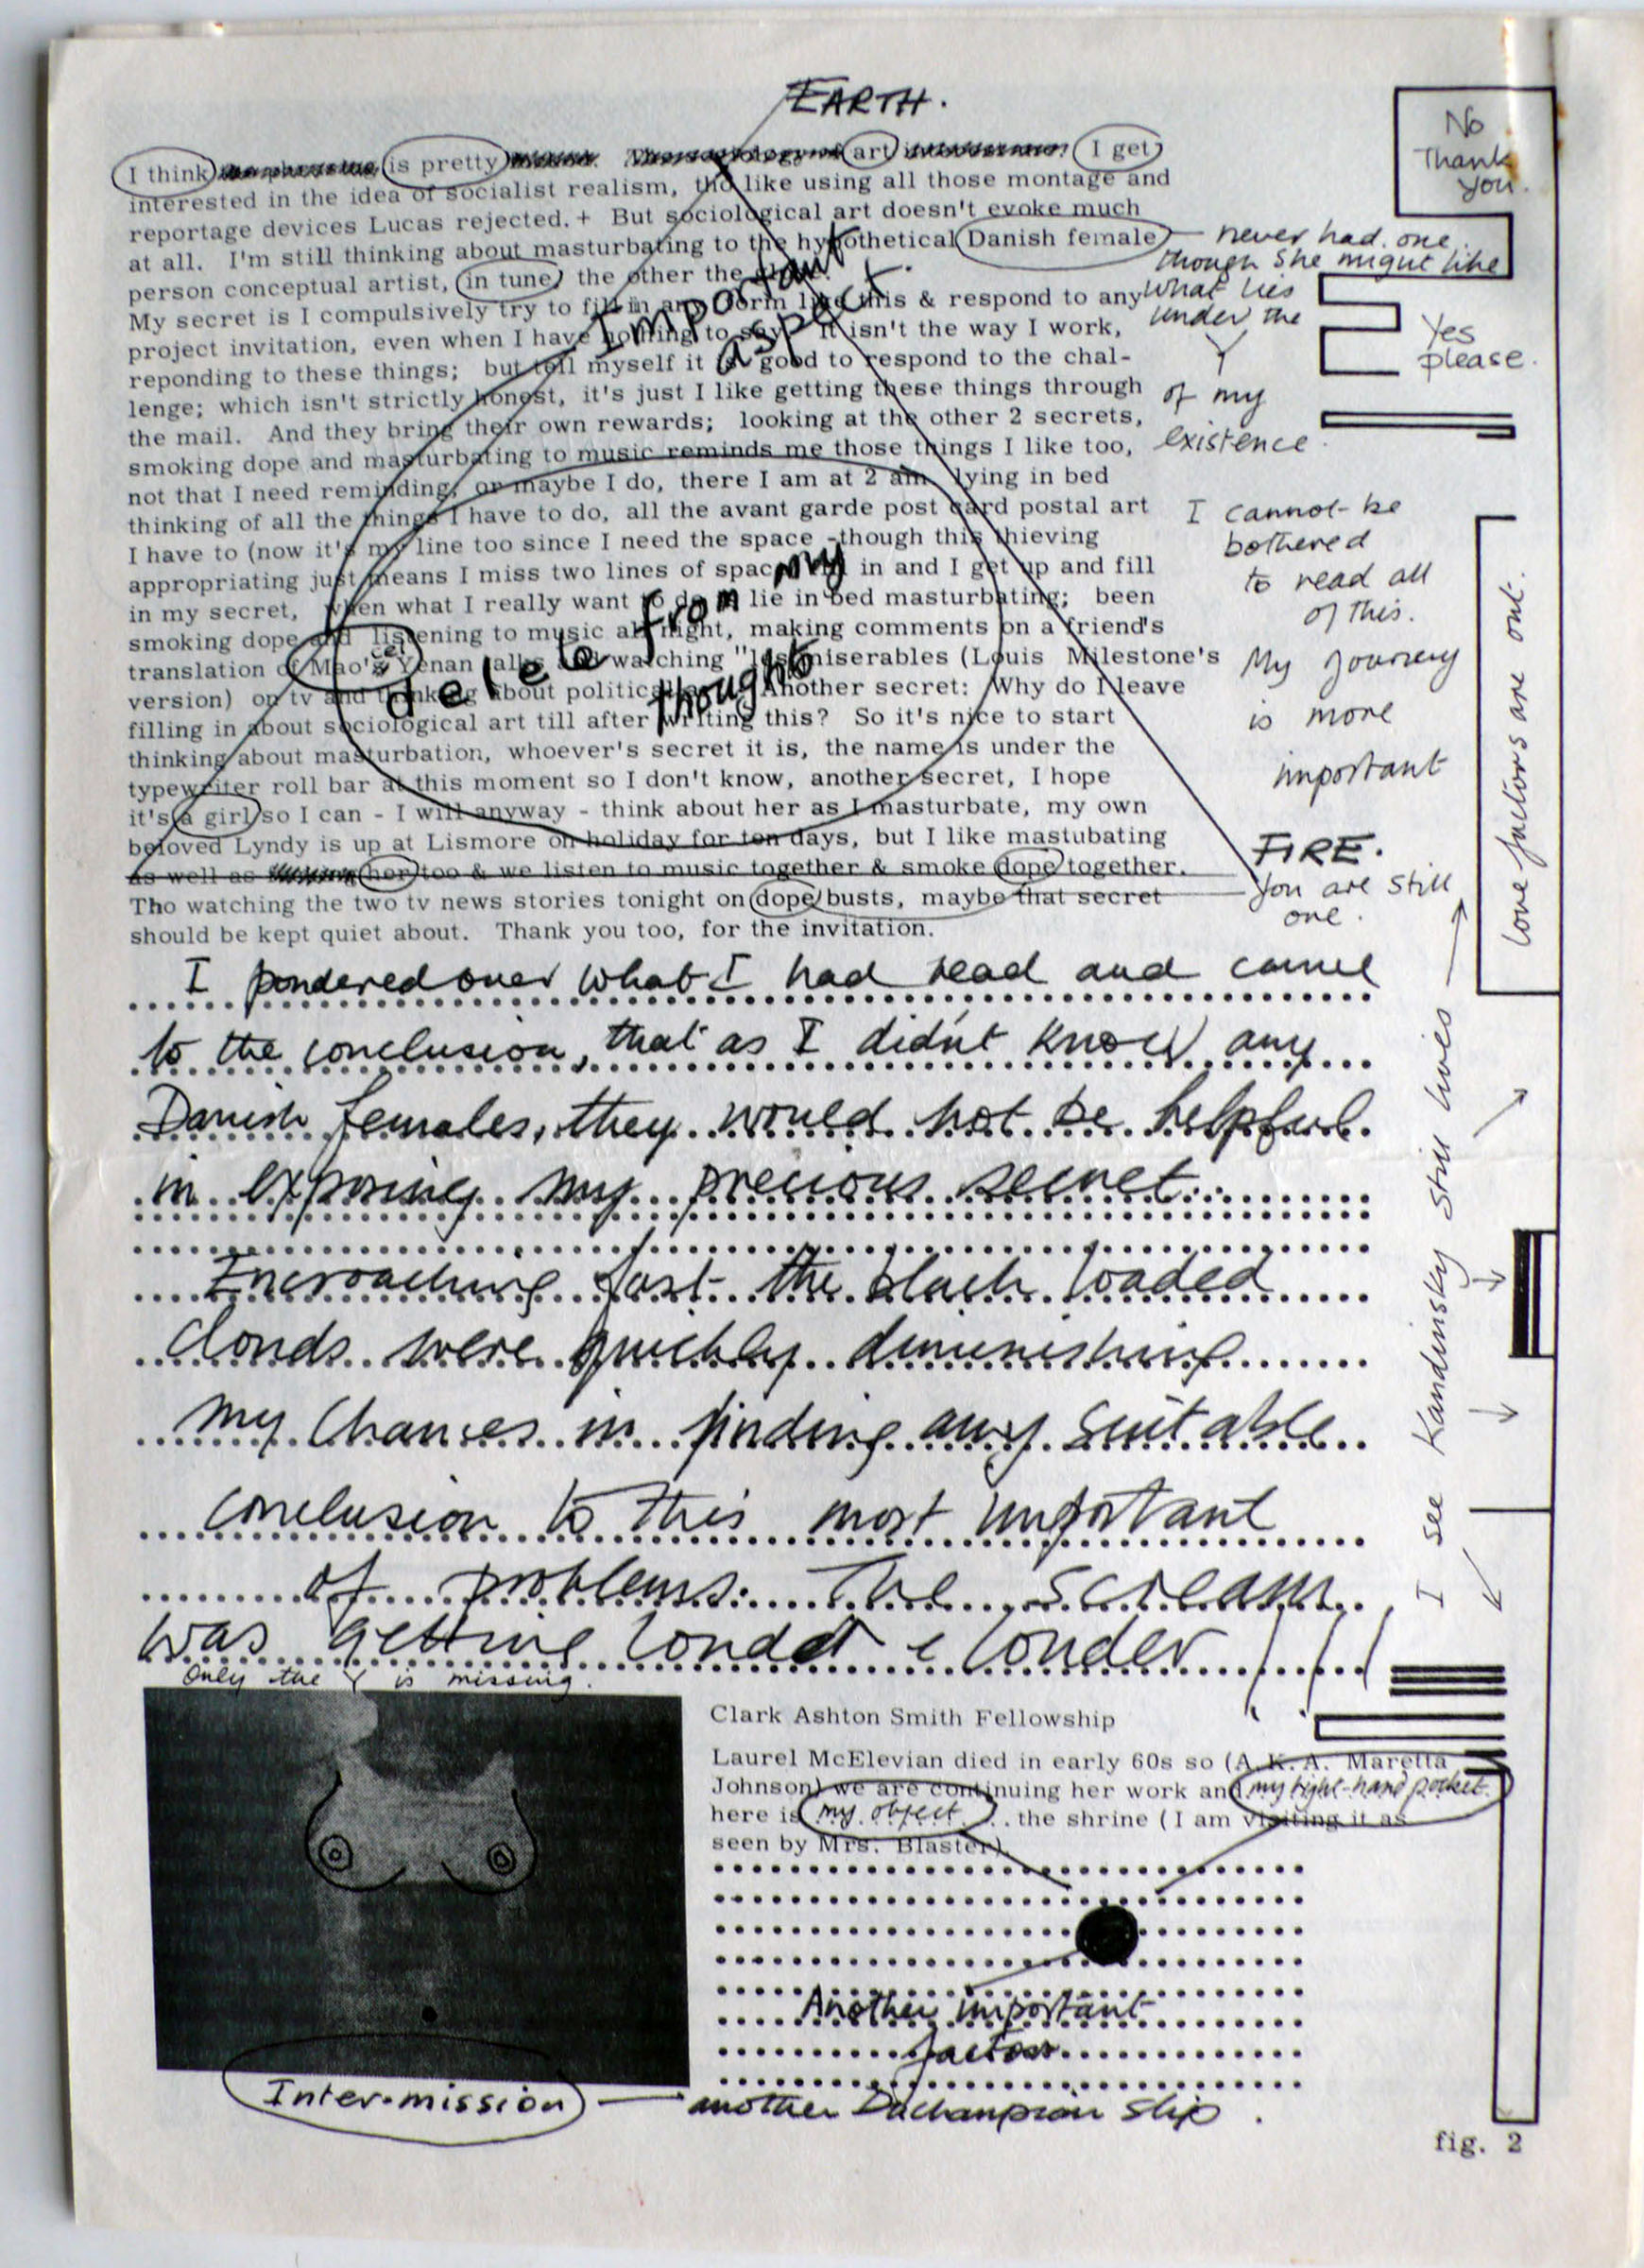 EARTH.
I think is pretty art I get
interested in the idea of socialist realism, tho like using all those montage and
reportage devices Lucas rejected.+ But sociological art doesn't evoke much
at all. I'm still thinking about masturbating to the hypothetical Danish female
person conceptual artist, in tune, the other the
My secret is I compulsively try to fill in any form like this & respond to any
project invitation, even when I have nothing to say. It isn't the way I work,
reponding to these things; but tell myself it is good to respond to the chal-
lenge; which isn't strictly honest, it's just I like getting these things through
the mail. And they bring their own rewards; looking at the other 2 secrets,
smoking dope and masturbating to music reminds me those things I like too,
not that I need reminding, or maybe I do, there I am at 2 am lying in bed
thinking of all the things I have to do, all the avant garde post card postal art
I have to (now it's my line too since I need the space -though this thieving
appropriating just means I miss two lines of space in and I get up and fill
in my secret, when what I really want to do lie in bed masturbating; been
smoking dope and listening to music all night, making comments on a friend's
translation of Mao's Yenan talks and watching "les miserables (Louis Milestone's
version) on tv and thinking about political Another secret: Why do I leave
filling in about sociological art till after writing this? So it's nice to start
thinking about masturbation, whoever's secret it is, the name is under the
typewriter roll bar at this moment so I don't know, another secret, I hope
it's a girl so I can - I will anyway - think about her as I masturbate, my own
beloved Lyndy is up at Lismore on holiday for ten days, but I like mastubating
as well as her too & we listen to music together & smoke dope together.
Tho watching the two tv news stories tonight on dope busts, maybe that secret
should be kept quiet about. Thank you too, for the invitation.
Important
aspect.
delete from
my
thoughts
No
Thank
you.
never had one
though she might like
what lies
under the
Y
of my
existence.
Yes
please.
I cannot be
bothered
to read all
of this.
My journey
is more
important
FIRE.
You are still
one.
love factors are out.
I see Kandinsky still lives
I pondered over what I had read and came
to the conclusion, that as I didn't know any
Danish females, they would not be helpful
in exposing my precious secret.
Encroaching fast the black loaded
clouds were quickly diminishing
my chances in finding any suitable
conclusion to this most important
of problems. The scream
was getting louder & louder ! ! !
only the Y is missing.
Clark Ashton Smith Fellowship
Laurel McElevian died in early 60s so (A.K.A. Maretta
Johnson) we are continuing her work and my right-hand pocket.
here is my object the shrine (I am visiting it as
seen by Mrs. Blaster)
Another important
factor
Inter-mission
another Duchampian slip.
fig. 2